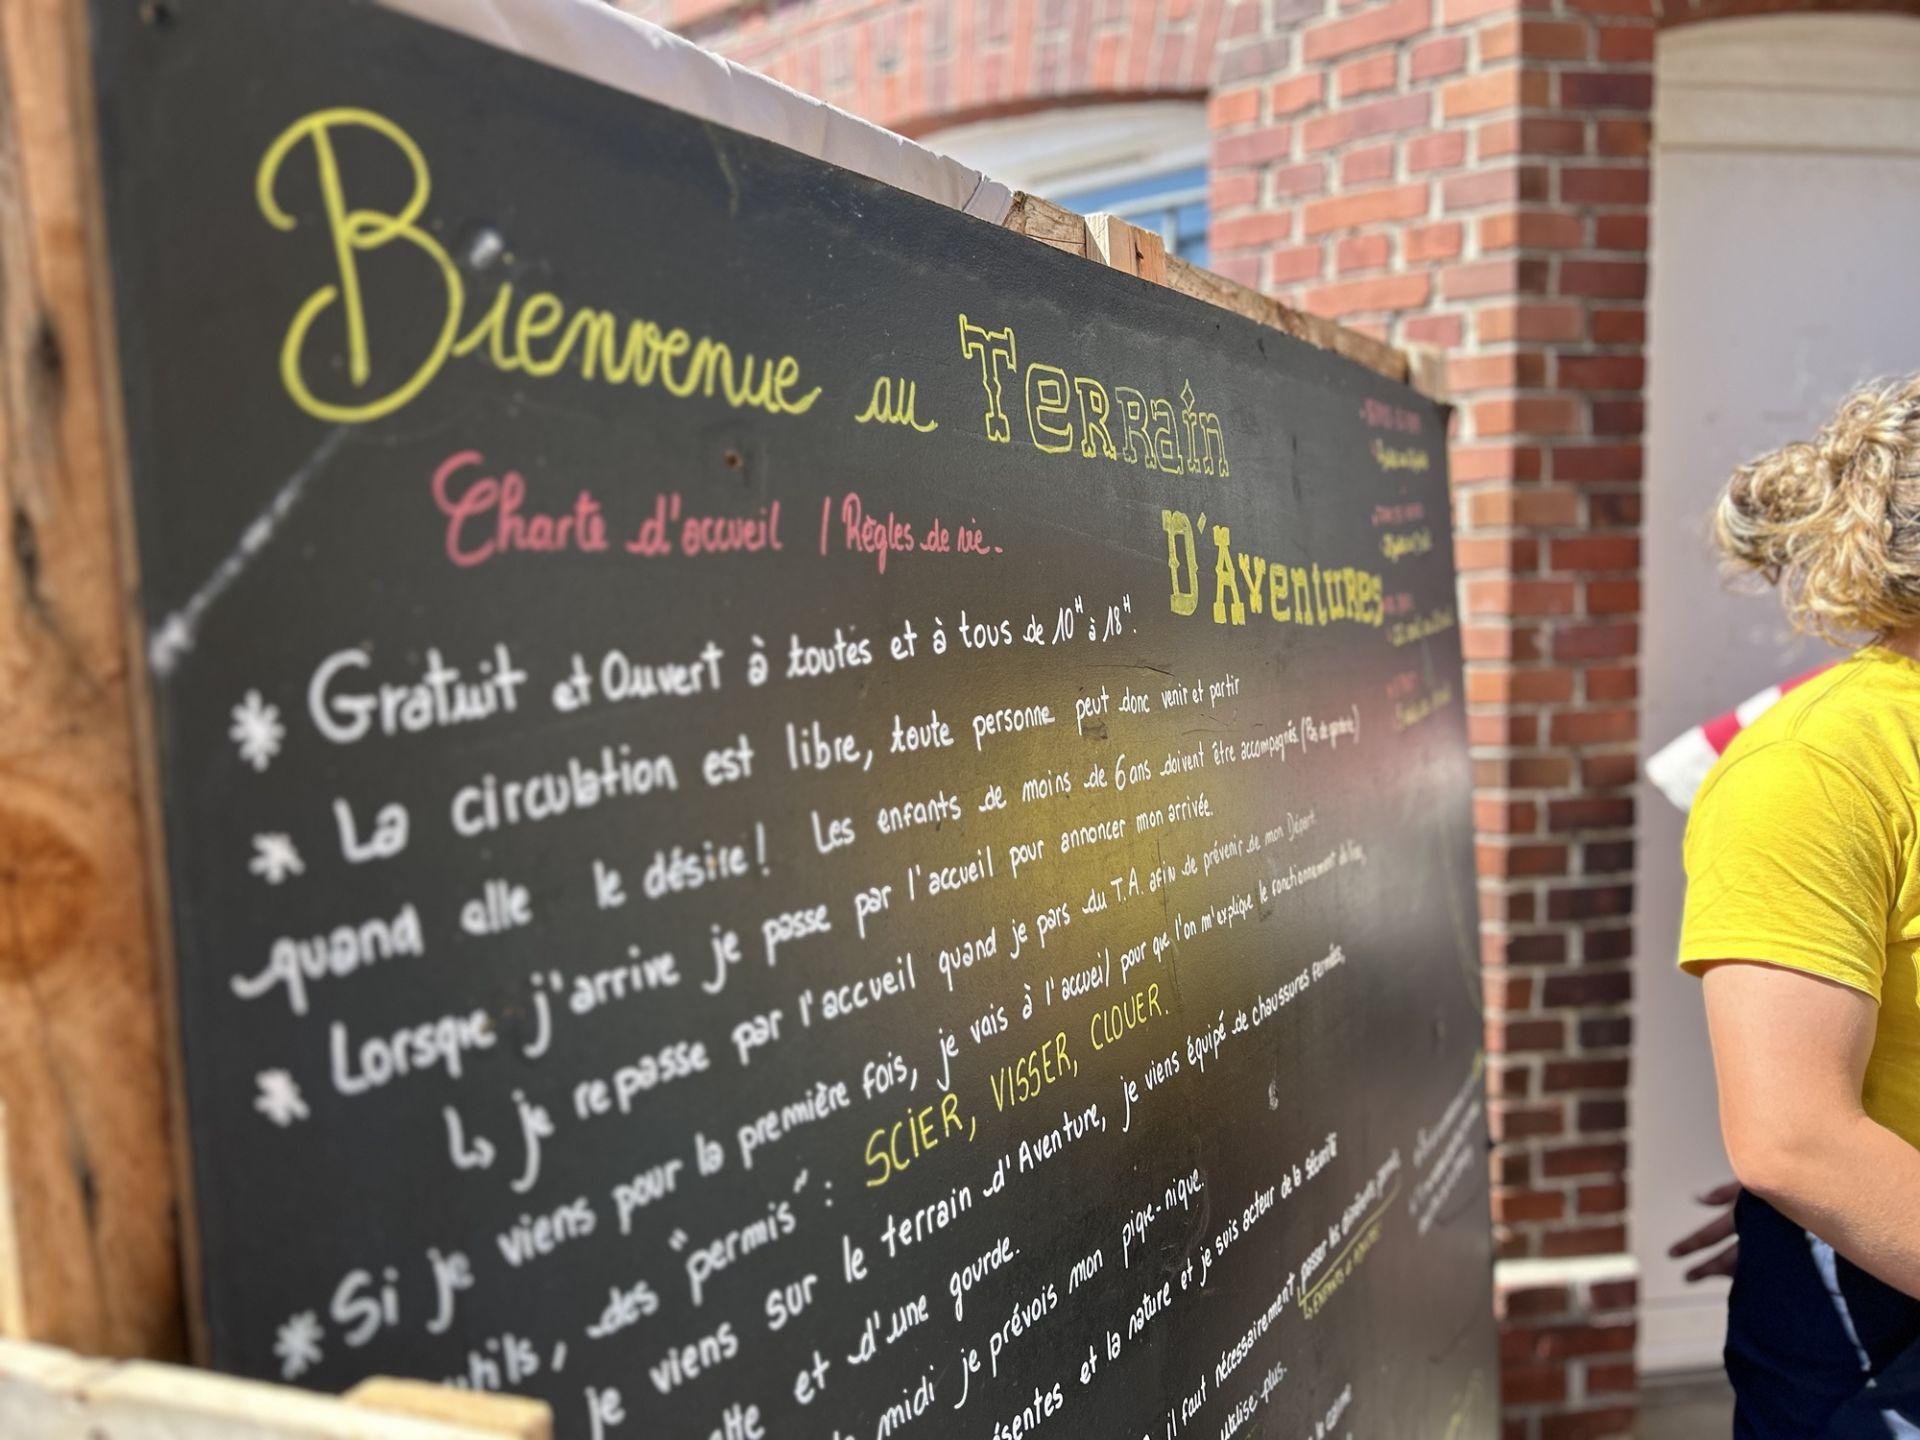 Bienvenue au Terrain
D'Aventures
Charte d'accueil / Règles de vie.
* Gratuit et Ouvert à toutes et à tous de 10H à 18H.
* La circulation est libre, toute personne peut donc venir et partir
quand elle le désire ! Les enfants de moins de 6 ans doivent être accompagnés. (Pas de garderie)
* Lorsque j'arrive je passe par l'accueil pour annoncer mon arrivée.
↳ je repasse par l'accueil quand je pars du T.A. afin de prévenir de mon Départ.
* Si je viens pour la première fois, je vais à l'accueil pour que l'on m'explique le fonctionnement du lieu,
outils, des "permis" : SCIER, VISSER, CLOUER.
je viens sur le terrain d'Aventure, je viens équipé de chaussures fermées,
et d'une gourde.
midi je prévois mon pique-nique.
et la nature et je suis acteur de la sécurité
il faut nécessairement passer les
utilise plus.